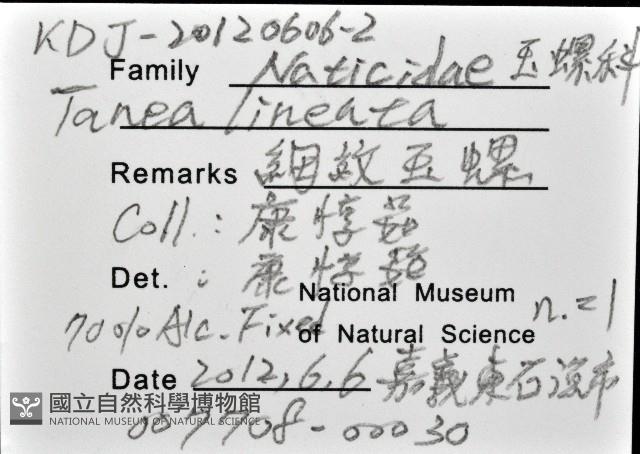 KDJ-20120606-2
Family Naticidae 玉螺科
Tanea lineata
Remarks 細紋玉螺
Coll.: 康惇
Det.: 康惇
National Museum n.=1
70% Alc. Fixed of Natural Science
Date 2012,6,6 嘉義東石漁市
國立自然科學博物館
NATIONAL MUSEUM OF NATURAL SCIENCE
007708-00030